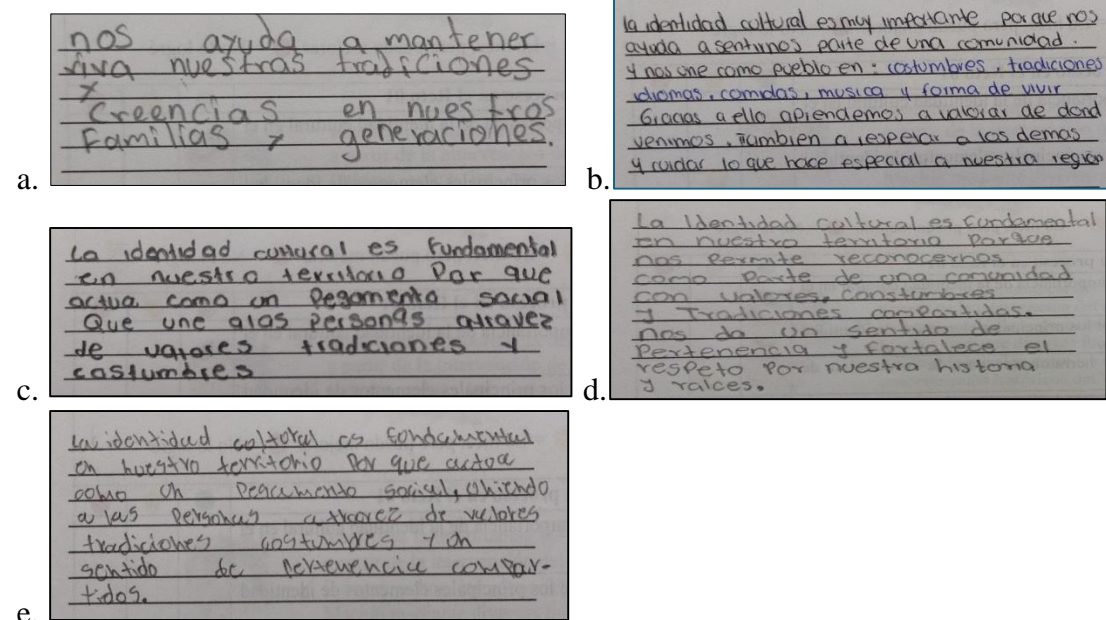 nos ayuda a mantener
viva nuestras tradiciones
y
Creencias en nuestros
Familias y generaciones.
a.
la identidad cultural es muy importante porque nos
ayuda a sentirnos parte de una comunidad.
y nos une como pueblo en: costumbres, tradiciones
idiomas, comidas, musica y forma de vivir
Gracias a ello aprendemos a valorar de dond
venimos, Tambien a respetar a los demas
y cuidar lo que hace especial a nuestra región
b.
La identidad cultural es fundamental
en nuestro territorio Por que
actua como un Pegamento social
Que une alas Personas atravez
de valores tradiciones y
costumbres
c.
La Identidad cultural es fundamental
en nuestro territorio Porque
nos Permite reconocernos
como Parte de una comunidad
con valores, constumbres
y Tradiciones compartidas.
nos da un sentido de
Pertenencia y fortalece el
respeto por nuestra historia
y raices.
d.
La identidad coltoral es fondamental
en nuestro territorio Por que actoa
como un Pegamento social, uniendo
a las Personas a travez de valores
tradiciones costumbres y un
sentido de Pertenencia compar-
tidos.
e.